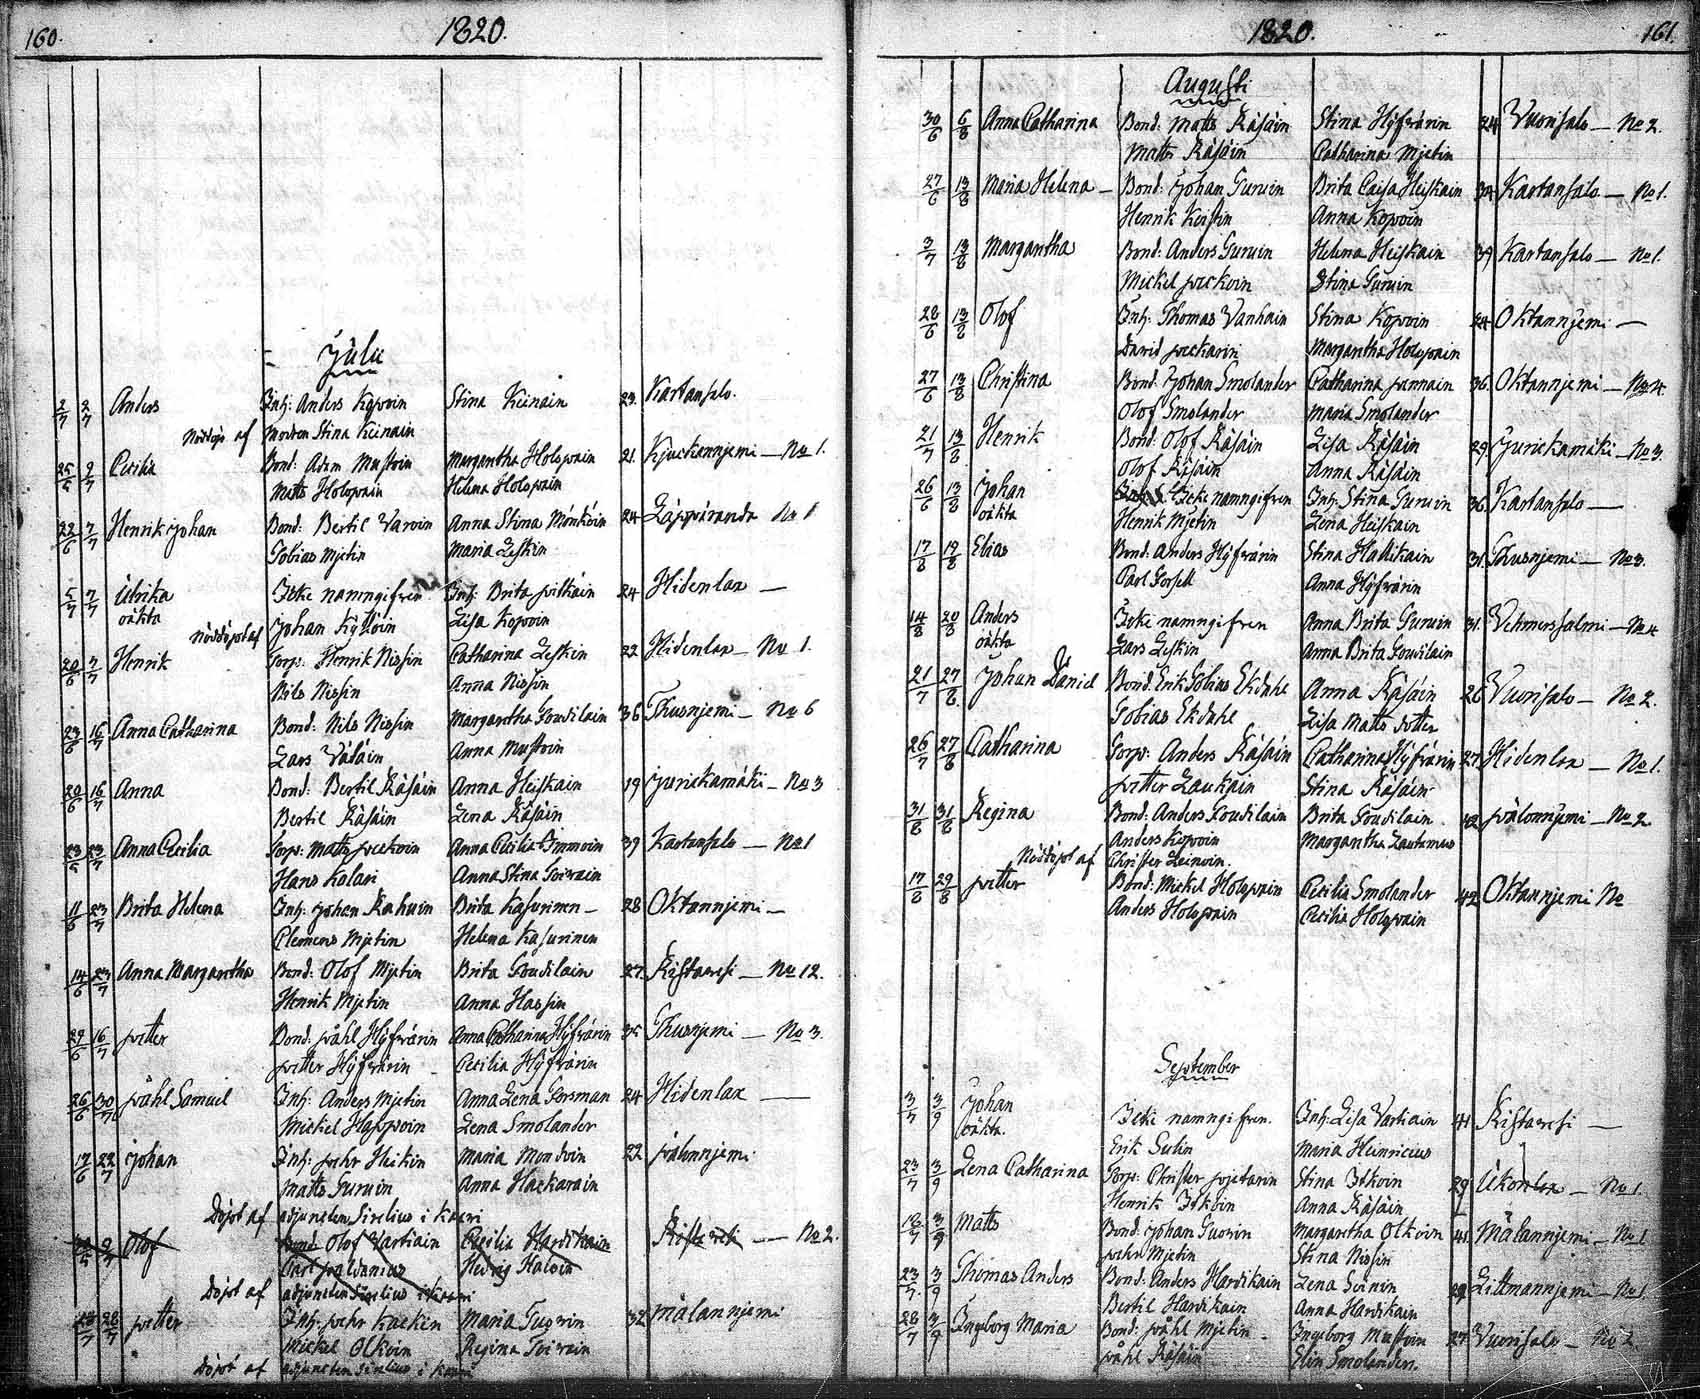 160.
1820.
Julii
2/7 2/7 Anders Inh: Anders Kopoin Stina Keinäin 23. Kartansalo.
Nöddöpt af Modren Stina Keinäin
25/6 2/7 Cecilia Bond: Adam Mustoin Margaretha Holopain 21. Kjuckannjemi — No 1.
Matts Holopain Helena Holopain
22/6 7/7 Henrik Johan Bond: Bertil Varoin Anna Stina Mönköin 24 Läppäranda No 1
Tobias Mjetin Maria Leskin
5/7 7/7 Ulrika Icke namngifven Inh: Brita Pitkäin 24 Hidenlax —
oäkta Johan Kytköin Lisa Kopoin
Nöddöpt af
20/6 7/7 Henrik Torp: Henrik Nissin Catharina Leskin 22 Hidenlax — No 1.
Nils Nissin Anna Nissin
23/6 16/7 Anna Catharina Bond: Nils Nissin Margaretha Soudilain 36 Thusnjemi — No 6
Lars Väläin Anna Mustoin
20/6 16/7 Anna Bond: Bertil Räsäin Anna Heiskain 19 Jurickamäki — No 3
Bertil Räsäin Lena Räsäin
23/6 23/7 Anna Cecilia Torp: Matts Peckoin Anna Cecilia Immoin 39 Kartansalo — No 1
Hans Kolari Anna Stina Toivain
11/6 23/7 Brita Helena Inh: Johan Rahuin Brita Kasurinen — 28 Oktannjemi —
Clemens Mjetin Helena Kasurinen
14/6 23/7 Anna Margaretha Bond: Olof Mjetin Brita Soudilain 27. Ristavesi — No 12.
Henrik Mjetin Anna Hassin
29/6 16/7 Petter Bond: Påhl Hyfvärin Anna Catharina Hyfvärin 35 Thusnjemi — No 3.
Petter Hyfvärin — Cecilia Hyfvärin
26/6 30/7 Påhl Samuel Inh: Anders Mjetin Anna Lena Forsman 24 Hidenlax —
Mickel Happoin Lena Smolander
17/6 22/7 Johan Inh: Pehr Heikin Maria Mondoin 22 Pälonnjemi
Matts Turuin Anna Hackarain
Döpt af adjuncten Sirelius i Kaavi
Olof Bond: Olof Vartiain Cecilia Hardikain Ristavesi — No 2.
Carl Paldanius Hedvig Haloin
Döpt af adjuncten Sirelius i Kaavi
28/7 Petter Inh: Pehr Kaekin Maria Tuorin 32 Mälannjemi
Mickel Olkoin Regina Toivain
Döpt af adjuncten Sirelius i Kaavi
1820.
161.
Augusti
30/6 6/8 Anna Catharina Bond: Matts Räsäin Stina Hyfvärin 24 Vuorisalo — No 2.
Matts Räsäin Catharina Mjetin
27/6 13/8 Maria Helena — Bond: Johan Turuin Brita Caisa Heiskain 34 Kartansalo — No 1.
Henrik Keistin Anna Kopoin
3/7 13/8 Margaretha Bond: Anders Turuin Helena Heiskain 39 Kartansalo — No 1.
Mickel Peckoin Stina Turuin
28/6 13/8 Olof Inh: Thomas Vanhain Stina Kopoin 24 Oktannjemi —
David Peckarin Margaretha Holopain
27/6 13/8 Christina Bond: Johan Smolander Catharina Pannain 36. Oktannjemi — No 4.
Olof Smolander Maria Smolander
21/7 13/8 Henrik Bond: Olof Räsäin Lisa Räsäin 29. Jurickamäki — No 3.
Olof Räsäin Anna Räsäin
26/6 13/8 Johan Icke namngifven Inh. Stina Turuin 36. Kartansalo —
oäkta Henrik Mjetin Lena Heiskain
17/8 19/8 Elias Bond: Anders Hyfvärin Stina Hallikain 31. Thusnjemi — No 3.
Carl Forsell Anna Hyfvärin
14/8 20/8 Anders Icke namngifven Anna Brita Turuin 31. Vehmersalmi — No 4
oäkta Lars Leskin Anna Brita Soudilain
21/7 27/8. Johan Daniel Bond. Erik Tobias Ekdahl Anna Räsäin 26. Vuorisalo — No 2.
Tobias Ekdahl Lisa Matts dotter
26/7 27/8 Catharina Torp: Anders Räsäin Catharina Hyfvärin 27. Hidenlax — No 1.
Petter Laukain Stina Räsäin
31/8 31/8 Regina Bond: Anders Soudilain Brita Soudilain. 42. Pälonnjemi — No 2
Anders Kopoin Margaretha Lautamus
Nöddöpt af Christer Leinoin.
17/8 29/8 Petter Bond: Mickel Holopain Cecilia Smolander 42 Oktannjemi No
Anders Holopain Cecilia Holopain
September
3/7 3/9 Johan Icke namngifven. Inh: Lisa Vartiain 41. Ristavesi —
oäkta. Erik Sutin Maria Heinricius
23/7 3/9 Lena Catharina Torp: Christer Pijetarin Stina Itkoin 29. Ukonlax — No 1.
Henrik Itköin Anna Räsäin
18/7 3/9 Matts Bond: Johan Tuorin Margaretha Olkoin 41. Mälannjemi — No 1
Pehr Mjetin Stina Nissin
23/7. 3/9 Thomas Anders Bond: Anders Hardikain Lena Soinin 29. Littmannjemi — No 1.
Bertil Hardikain Anna Hardikain
28/7 3/9 Ingeborg Maria Bond: Påhl Mjetin — Ingeborg Mustoin 27. Vuorisalo — No 2
Påhl Räsäin Elin Smolander.